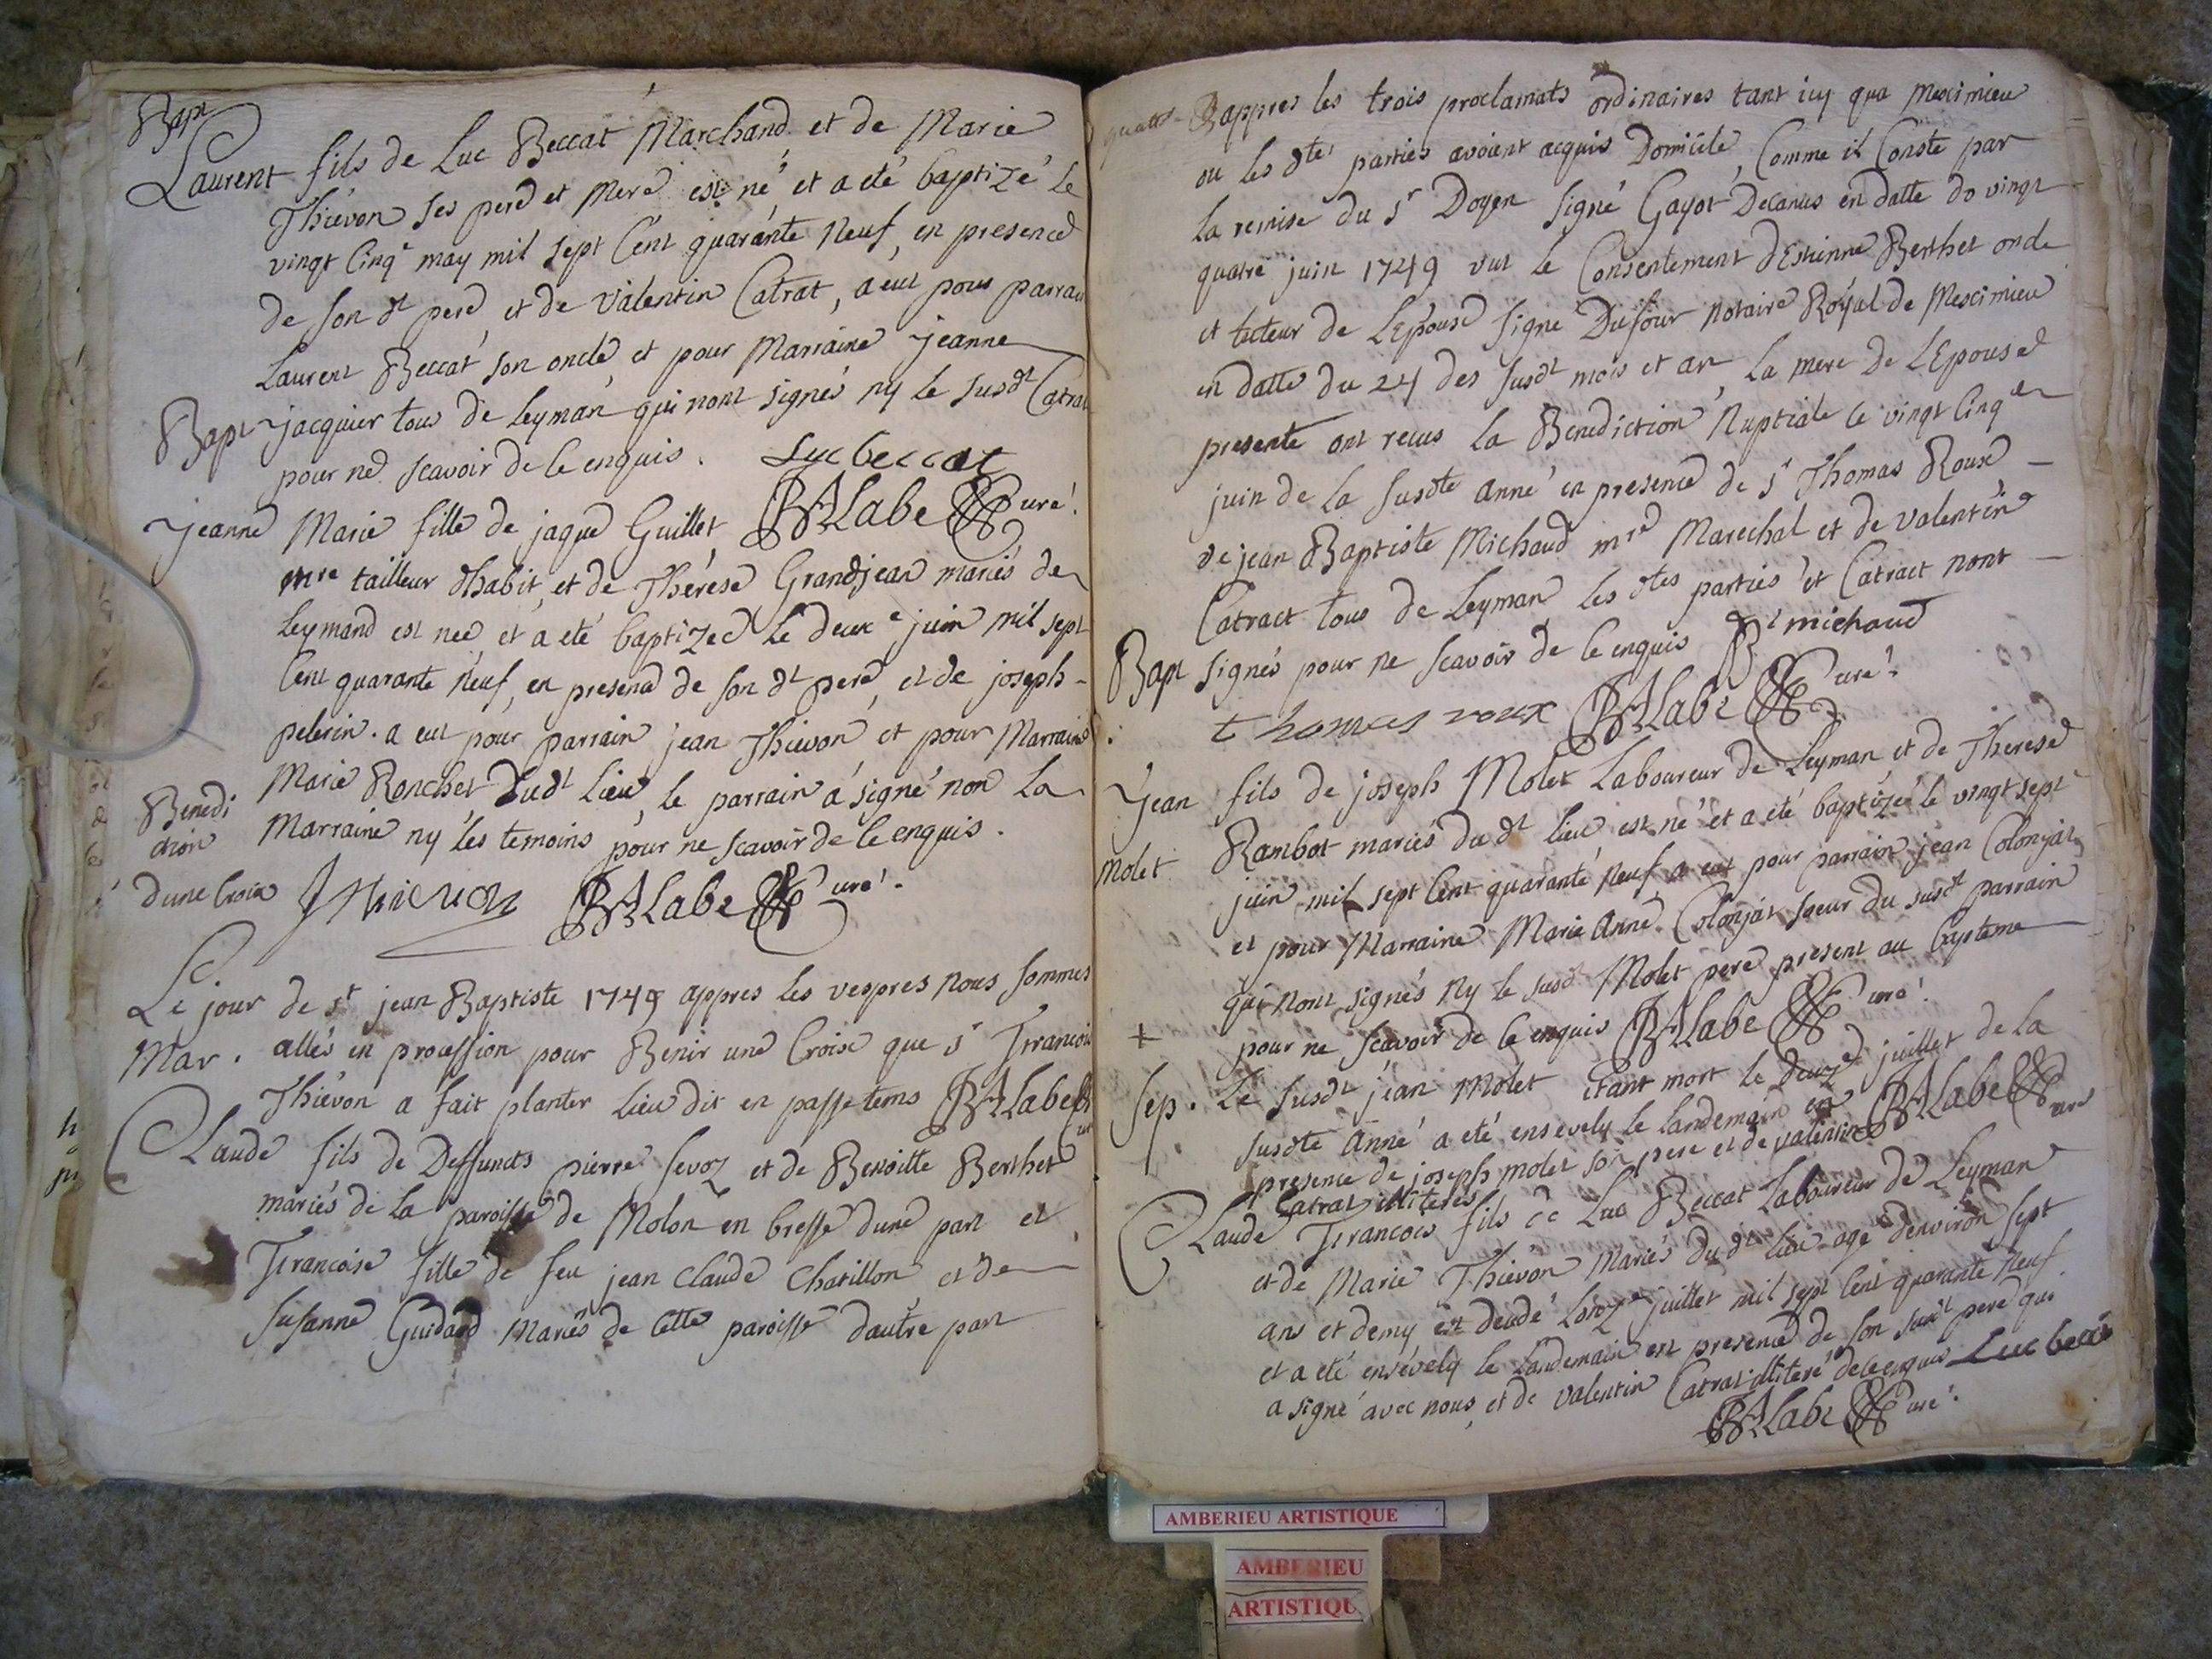 Bapt
Laurent fils de Luc Beccat Marchand et de Marie
Thiévon ses pere et mere est né et a eté baptizé le
vingt cinq may mil sept cent quarante neuf, en presence
de son dt pere et de Valentin Catrat, a eut pour parrain
Laurent Beccat son oncle et pour Marraine jeanne
Bapt jacquier tous de Leyman qui nont signés ny le susdt Catrat
pour ne scavoir de ce enquis. Luc beccat
jeanne Marie fille de jaque Guillet BALabe Curé.
mre tailleur dhabit, et de Thérese Grandjean mariés de
Leymand est née et a eté baptizée le deuxe juin mil sept
cent quarante neuf, en presence de son dt pere, et de joseph
pelerin. a eut pour parrain jean Thievon et pour Marraine
Marie Ronchet dudt lieu, le parrain a signé non la
Benedi
ction
dune Croix
Marraine ny les temoins pour ne scavoir de ce enquis.
J thievon BALabe Curé.
Le jour de st jean Baptiste 1749 appres les vespres nous sommes
Mar. allés en procession pour Benir une Croix que sr Francois
Thiévon a fait planter lieu dit en passe tems BALabe Cur
Claude fils de Deffuncts pierre Sevoz et de Benoitte Berthet
mariés de la paroisse de Molon en bresse dune part et
Francoise fille de feu jean Claude Chatillon et de
Susanne Guidard Mariés de cette paroisse dautre part
appres les trois proclamats ordinaires tant icy qua Meximieu
ou les dtes parties avoient acquis Domicile, Comme il Conste par
la remise du sr Doyen signé Gayot Decanus en datte du vingt
quatre juin 1749 vut le Consentement dEstienne Berthet oncle
et tuteur de LEpouse signé Dufour notaire Royal de Meximieu
en datte du 24 des susdt mois et an, la mere de LEpouse
presente ont recus la Benediction Nuptiale le vingt cinq
juin de la susdte anné en presence de sr Thomas Roux
de jean Baptiste Michaud mre Marechal et de valentin
Catract tous de Leyman les dtes parties et Catract nont
Bapt signés pour ne scavoir de ce enquis Bt michaud
thomas roux BALabe Curé.
jean fils de joseph Molet Laboureur de Leyman et de Therese
Molet Rambot mariés du dt lieu est né et a eté baptizé le vingt sept
juin mil sept cent quarante neuf, a eut pour parrain jean Colonjat
et pour Marraine Marie Anne Colonjat soeur du susdt parrain
qui nont signés ny le susdt Molet pere present au bapteme
+ pour ne scavoir de ce enquis BALabe Curé.
Sep. Le susdt jean Molet étant mort le deuxe juillet de la
susdte anné a eté ensevely le landemain en BALabe Curé
presence de joseph molet son pere et de valentin
Catrat illiterés
Claude Francois fils de Luc Beccat Laboureur de Leyman
et de Marie Thiévon Mariés du dt lieu agé denviron sept
ans et demy est decedé Lonze juillet mil sept cent quarante neuf
et a eté ensevely le Landemain en presence de son susdt pere qui
a signé avec nous, et de valentin Catrat illiteré de ce enquis Luc becca
BALabe Curé.
AMBERIEU ARTISTIQUE
AMBERIEU
ARTISTIQU